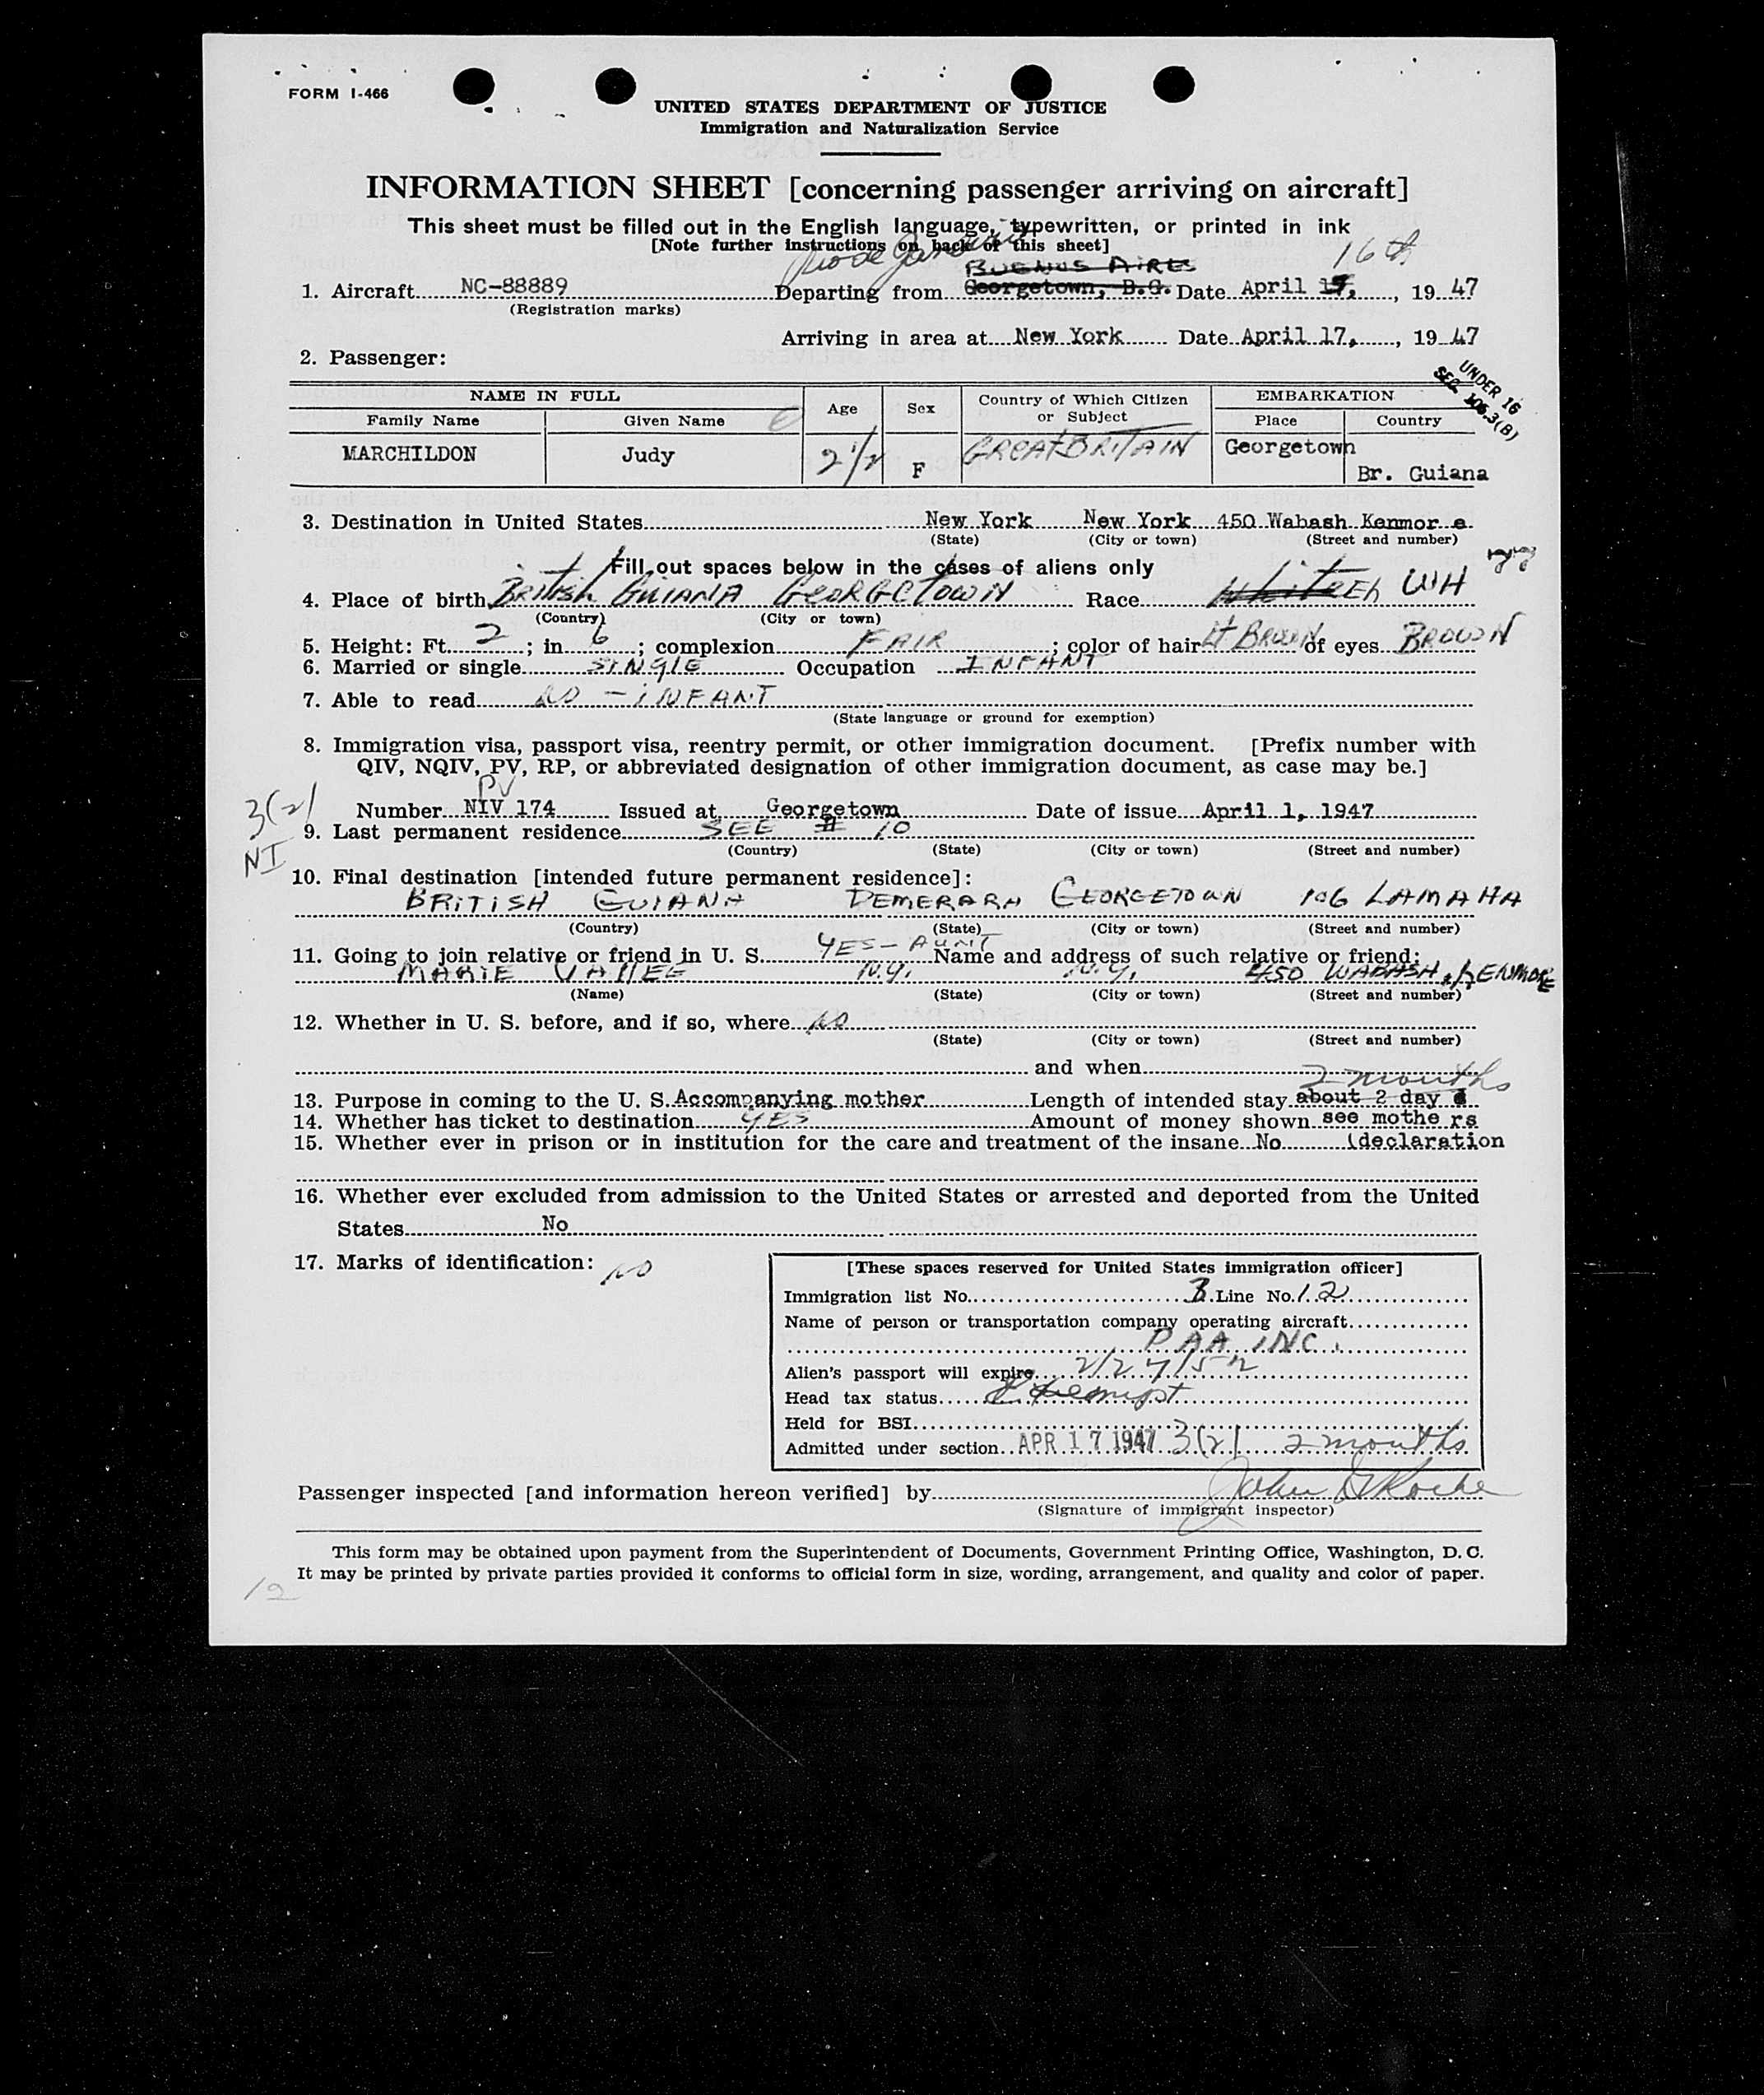 FORM I-466
UNITED STATES DEPARTMENT OF JUSTICE
Immigration and Naturalization Service
INFORMATION SHEET [concerning passenger arriving on aircraft]
This sheet must be filled out in the English language, typewritten, or printed in ink
[Note further instructions on back of this sheet]
Rio de Janeiro
BUENOS AIRES 16th
1. Aircraft NC-88889 Departing from Georgetown, B.G. Date April 15, 1947
(Registration marks)
Arriving in area at New York Date April 17, 1947
2. Passenger:
UNDER 16
SEC. 106.3(B)
NAME IN FULL Age Sex Country of Which Citizen or Subject EMBARKATION
Family Name Given Name Place Country
MARCHILDON Judy 2 1/2 F GREAT BRITAIN Georgetown
Br. Guiana
3. Destination in United States New York New York 450 Wabash Kenmor e
(State) (City or town) (Street and number)
Fill out spaces below in the cases of aliens only
4. Place of birth British GUIANA GEORGETOWN Race WH
(Country) (City or town)
5. Height: Ft. 2; in 6; complexion FAIR; color of hair LT BROWN of eyes BROWN
6. Married or single SINGLE Occupation INFANT
7. Able to read NO - INFANT
(State language or ground for exemption)
8. Immigration visa, passport visa, reentry permit, or other immigration document. [Prefix number with
QIV, NQIV, PV, RP, or abbreviated designation of other immigration document, as case may be.]
PV
3(2) Number NIV 174 Issued at Georgetown Date of issue April 1, 1947
9. Last permanent residence SEE # 10
NI (Country) (State) (City or town) (Street and number)
10. Final destination [intended future permanent residence]:
BRITISH GUIANA DEMERARA GEORGETOWN 106 LAMAHA
(Country) (State) (City or town) (Street and number)
11. Going to join relative or friend in U. S. YES - AUNT Name and address of such relative or friend:
MARIE VALLEE N.Y. N.Y. 450 WABASH, KENMORE
(Name) (State) (City or town) (Street and number)
12. Whether in U. S. before, and if so, where NO
(State) (City or town) (Street and number)
and when
2 months
13. Purpose in coming to the U. S. Accompanying mother Length of intended stay about 2 day s
14. Whether has ticket to destination YES Amount of money shown see mothe rs
15. Whether ever in prison or in institution for the care and treatment of the insane No (declaration
16. Whether ever excluded from admission to the United States or arrested and deported from the United
States No
17. Marks of identification: NO
[These spaces reserved for United States immigration officer]
Immigration list No. 3 Line No. 12
Name of person or transportation company operating aircraft
PAA INC.
Alien's passport will expire 2/27/52
Head tax status Exempt
Held for BSI
Admitted under section APR 17 1947 3(2) 2 months
Passenger inspected [and information hereon verified] by
(Signature of immigrant inspector)
This form may be obtained upon payment from the Superintendent of Documents, Government Printing Office, Washington, D. C.
It may be printed by private parties provided it conforms to official form in size, wording, arrangement, and quality and color of paper.
12